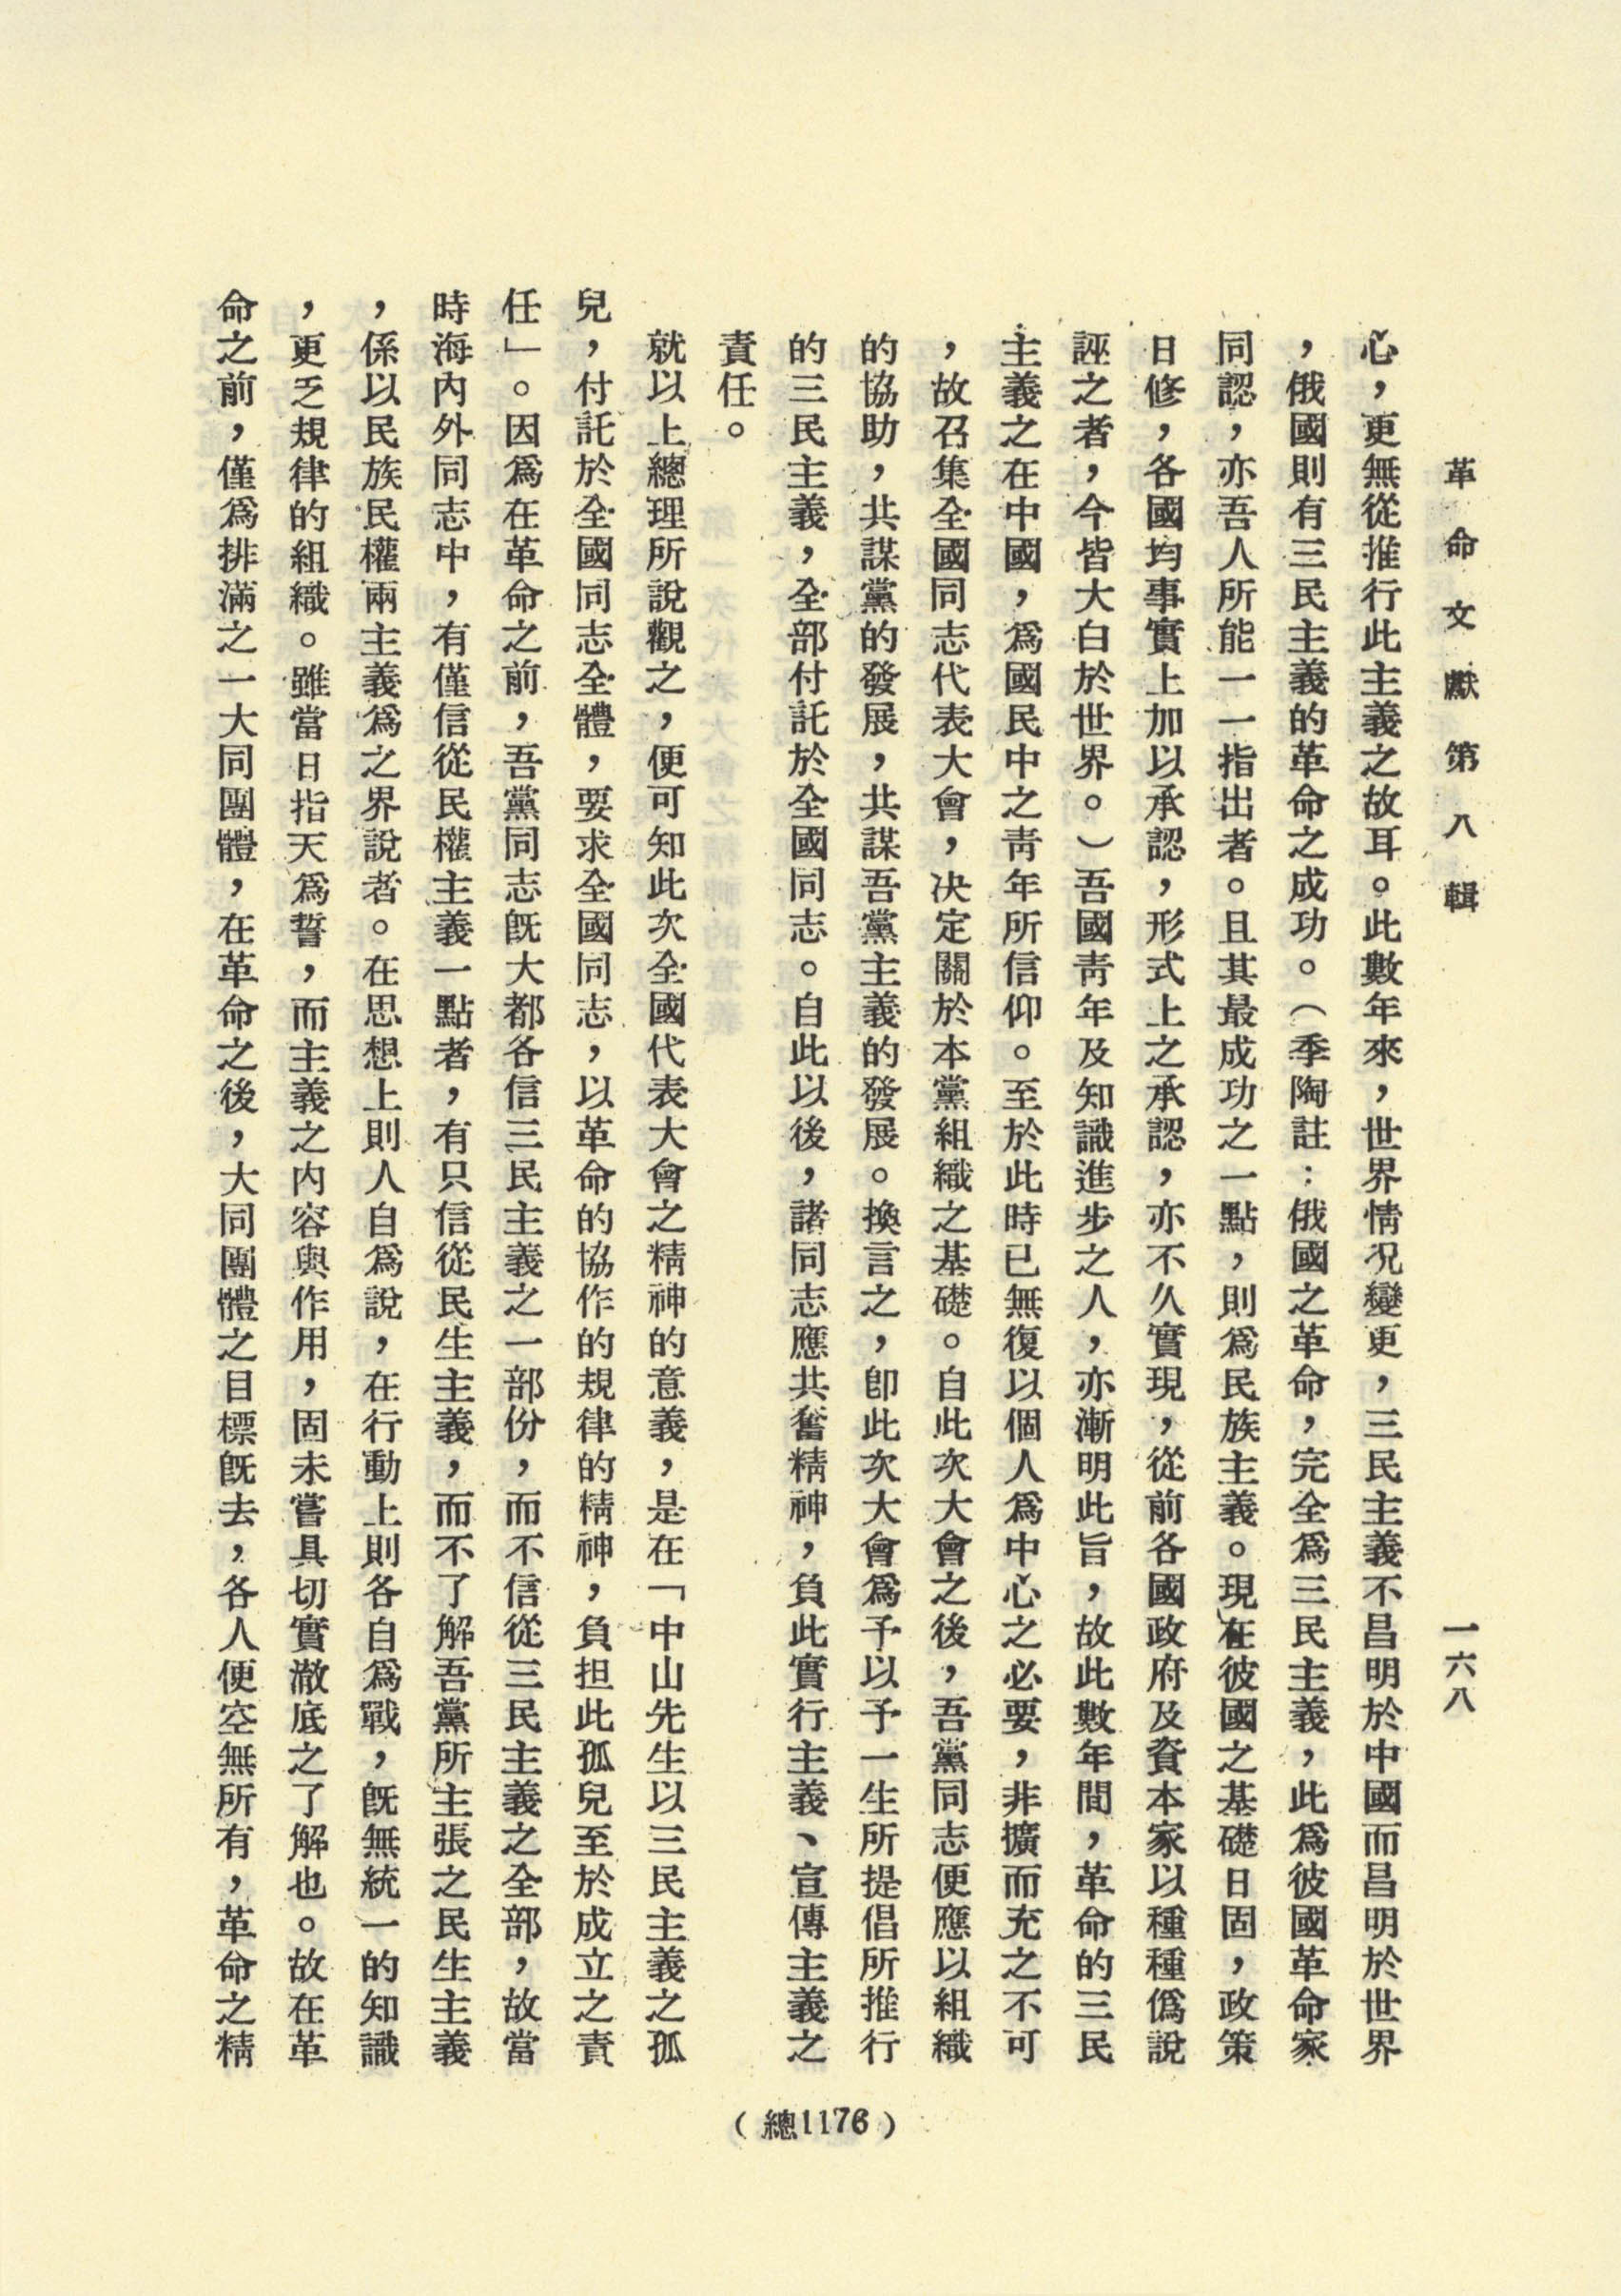 革命文獻第八輯
一六八
心，更無從推行此主義之故耳。此數年來，世界情況變更，三民主義不昌明於中國而昌明於世界
，俄國則有三民主義的革命之成功。（季陶註：俄國之革命，完全爲三民主義，此爲彼國革命家
同認，亦吾人所能一一指出者。且其最成功之一點，則爲民族主義。現在彼國之基礎日固，政策
日修，各國均事實上加以承認，形式上之承認，亦不久實現，從前各國政府及資本家以種種僞說
誣之者，今皆大白於世界。）吾國靑年及知識進步之人，亦漸明此旨，故此數年間，革命的三民
主義之在中國，爲國民中之靑年所信仰。至於此時已無復以個人爲中心之必要，非擴而充之不可
，故召集全國同志代表大會，決定關於本黨組織之基礎。自此次大會之後，吾黨同志便應以組織
的協助，共謀黨的發展，共謀吾黨主義的發展。換言之，卽此次大會爲予以予一生所提倡所推行
的三民主義，全部付託於全國同志。自此以後，諸同志應共奮精神，負此實行主義、宣傳主義之
責任。
就以上總理所說觀之，便可知此次全國代表大會之精神的意義，是在「中山先生以三民主義之孤
兒，付託於全國同志全體，要求全國同志，以革命的協作的規律的精神，負担此孤兒至於成立之責
任」。因爲在革命之前，吾黨同志旣大都各信三民主義之一部份，而不信從三民主義之全部，故當
時海內外同志中，有僅信從民權主義一點者，有只信從民生主義，而不了解吾黨所主張之民生主義
，係以民族民權兩主義爲之界說者。在思想上則人自爲說，在行動上則各自爲戰，旣無統一的知識
，更乏規律的組織。雖當日指天爲誓，而主義之內容與作用，固未嘗具切實澈底之了解也。故在革
命之前，僅爲排滿之一大同團體，在革命之後，大同團體之目標旣去，各人便空無所有，革命之精
（總1176）